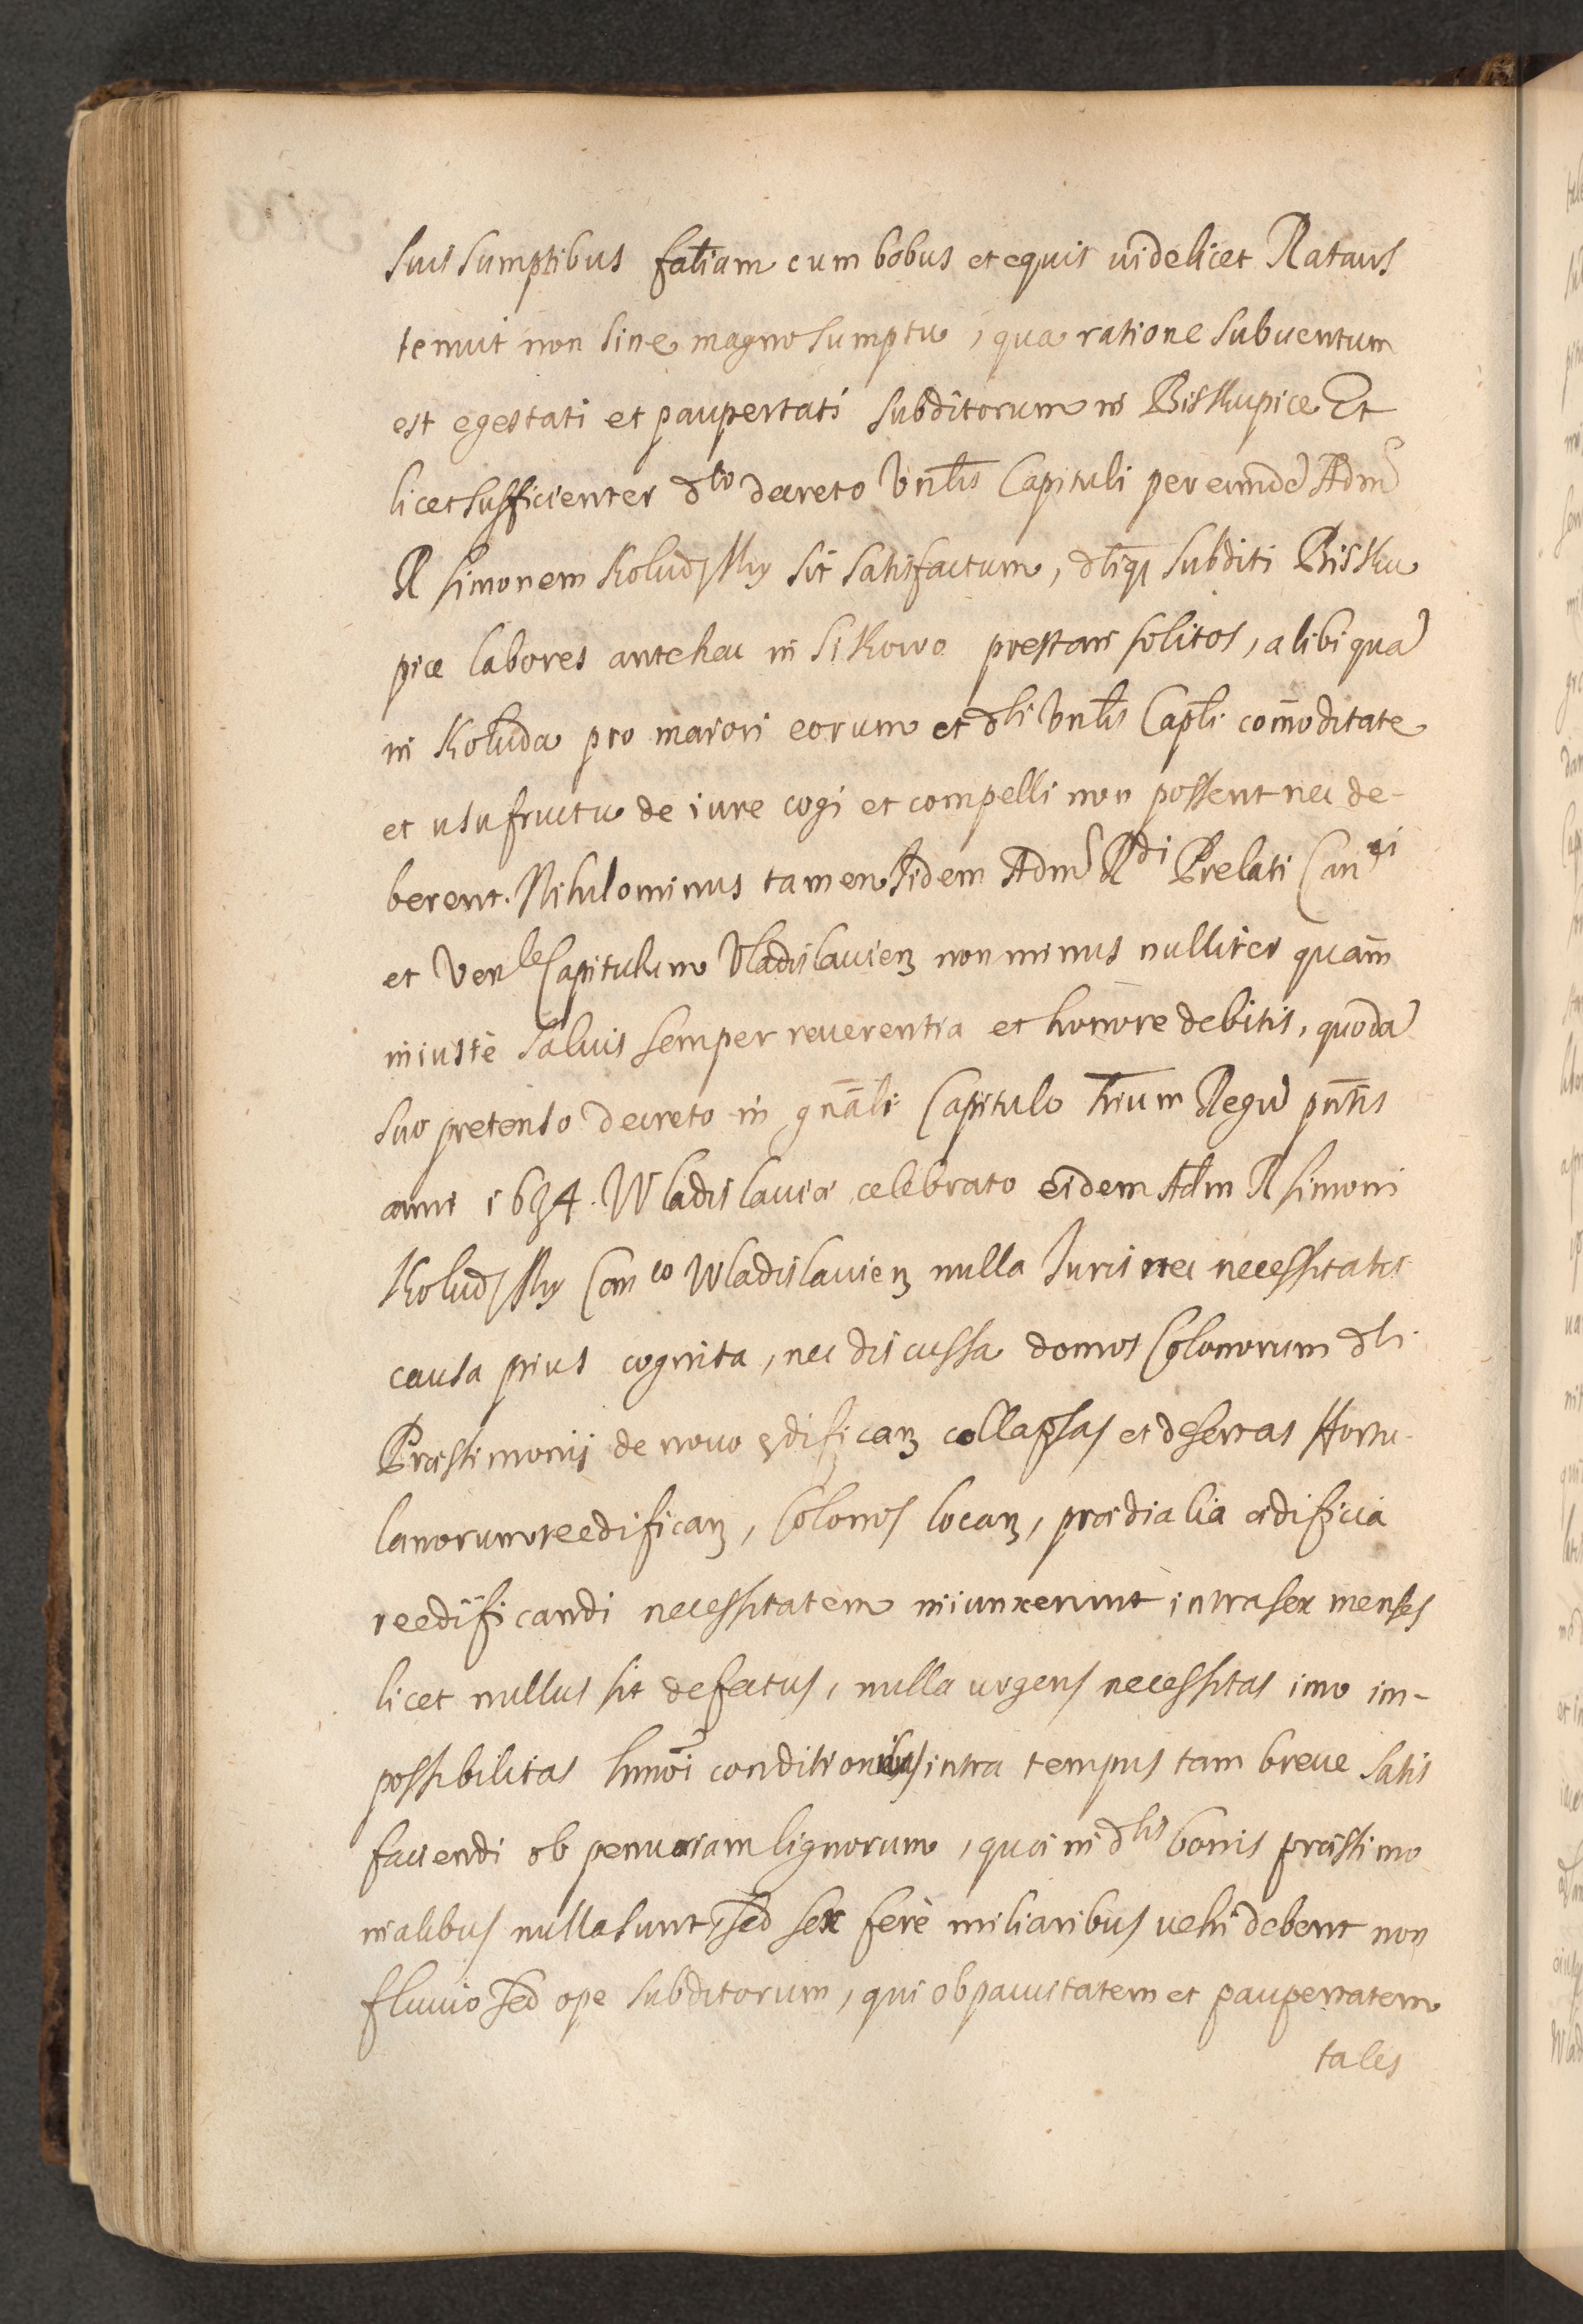 suis sumptibus fatiam cum bobus et equis uidelicet Rataus
tenuit non sine magno sumptu, qua ratione subuentum
est egestati et paupertati subditorum in Biskupice Et
licet sufficienter dto decreto Vnlis Capituli per eund Adm
R Simonem Koludzky sit satisfactum, dtiq subditi Bisku
pice labores antehac in Sikowo prestari solitos, alibi qua
in Koluda pro maiori eorum et dti Vnlis Capli comoditate
et usufructu de iure cogi et compelli non possent nec de-
berent. Nihilominus tamen Iidem Adm Rdi Prelati Canci
et Venle Capitulum Vladislauien non minus nulliter quam
iniustè saluis semper reuerentia et honore debitis, quoda
suo pretenso decreto in gnali Capitulo trium Regu pntis
anni 1634. Wladislauiæ celebrato eidem Adm R Simoni
Koludzky Canco Wladislauien nulla Iuris nec necessitatis
causa prius cognita, nec discussa domos Colonorum dti
Præstimonij de nouo ędifican collapsas et desertas Hortu-
lanorum reedifican, Colonos locan, prædialia ædificia
reedificandi necessitatem iniunxerunt intra sex menses
licet nullus sit defectus, nulla urgens necessitas imo im-
possibilitas hmoi conditionibus intra tempus tam breue satis
faciendi ob penuriam lignorum, quæ in dtis bonis præstimo
nialibus nulla sunt, sed sex ferè miliaribus uehi debent non
fluuio sed ope subditorum, qui ob pauitatem et paupertatem
tales